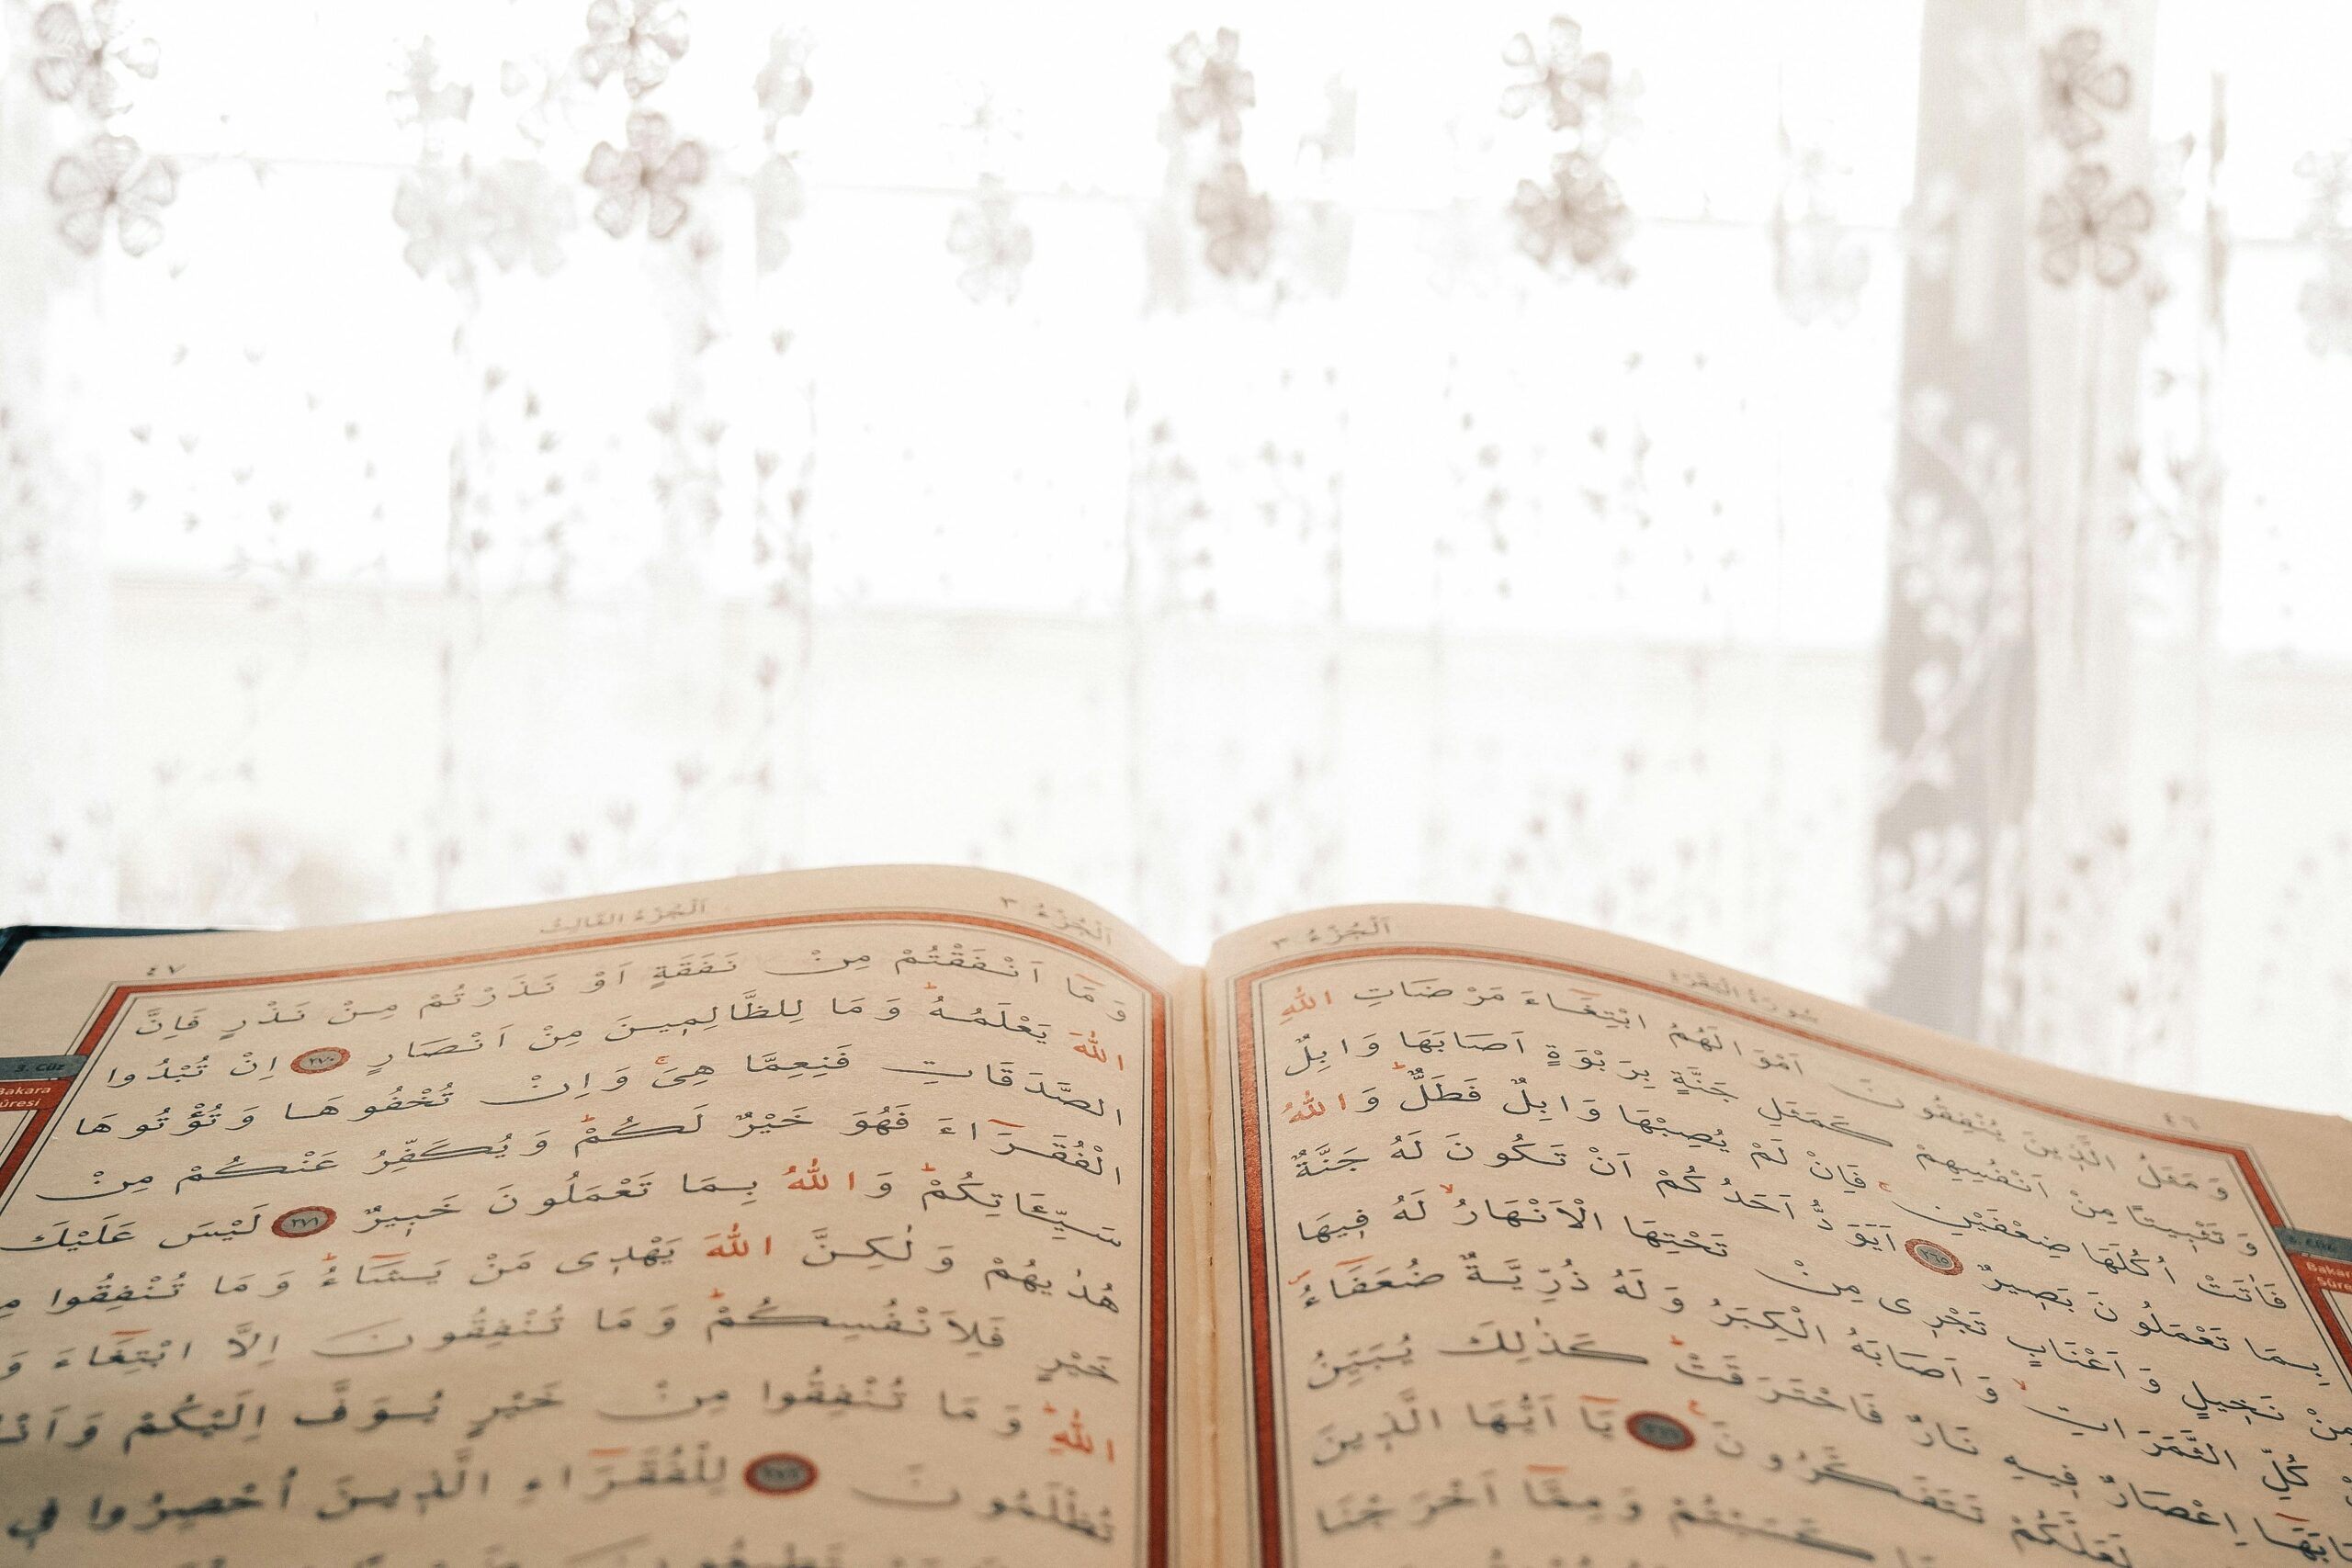 اَلْجُزْءُ ٣
سُورَةُ الْبَقَرَةِ
٤٦
وَمَثَلُ الَّذٖينَ يُنْفِقُونَ اَمْوَالَهُمُ ابْتِغَٓاءَ مَرْضَاتِ اللّٰهِ
وَتَثْبٖيتًا مِنْ اَنْفُسِهِمْ كَمَثَلِ جَنَّةٍ بِرَبْوَةٍ اَصَابَهَا وَابِلٌ
فَاٰتَتْ اُكُلَهَا ضِعْفَيْنِۚ فَاِنْ لَمْ يُصِبْهَا وَابِلٌ فَطَلٌّؕ وَاللّٰهُ
بِمَا تَعْمَلُونَ بَصٖيرٌ ﴿٢٦٥﴾ اَيَوَدُّ اَحَدُكُمْ اَنْ تَكُونَ لَهُ جَنَّةٌ
مِنْ نَخٖيلٍ وَاَعْنَابٍ تَجْرٖى مِنْ تَحْتِهَا الْاَنْهَارُۙ لَهُ فٖيهَا
كُلِّ الثَّمَرَاتِۙ وَاَصَابَهُ الْكِبَرُ وَلَهُ ذُرِّيَّةٌ ضُعَفَٓاءُۖ
اِعْصَارٌ فٖيهِ نَارٌ فَاحْتَرَقَتْؕ كَذٰلِكَ يُبَيِّنُ
لَعَلَّكُمْ تَتَفَكَّرُونَ ﴿٢٦٦﴾ يَٓا اَيُّهَا الَّذٖينَ
وَمِمَّٓا اَخْرَجْنَا
3. Cüz
Bakara
Sûresi
اَلْجُزْءُ ٣
اَلْجُزْءُ الثَّالِثُ
٤٧
وَمَٓا اَنْفَقْتُمْ مِنْ نَفَقَةٍ اَوْ نَذَرْتُمْ مِنْ نَذْرٍ فَاِنَّ
اللّٰهَ يَعْلَمُهُؕ وَمَا لِلظَّالِمٖينَ مِنْ اَنْصَارٍ ﴿٢٧٠﴾ اِنْ تُبْدُوا
الصَّدَقَاتِ فَنِعِمَّا هِىَۚ وَاِنْ تُخْفُوهَا وَتُؤْتُوهَا
الْفُقَرَٓاءَ فَهُوَ خَيْرٌ لَكُمْؕ وَيُكَفِّرُ عَنْكُمْ مِنْ
سَيِّـَٔاتِكُمْؕ وَاللّٰهُ بِمَا تَعْمَلُونَ خَبٖيرٌ ﴿٢٧١﴾ لَيْسَ عَلَيْكَ
هُدٰيهُمْ وَلٰكِنَّ اللّٰهَ يَهْدٖى مَنْ يَشَٓاءُؕ وَمَا تُنْفِقُوا
خَيْرٍ فَلِاَنْفُسِكُمْؕ وَمَا تُنْفِقُونَ اِلَّا ابْتِغَٓاءَ
اللّٰهِؕ وَمَا تُنْفِقُوا مِنْ خَيْرٍ يُوَفَّ اِلَيْكُمْ
تُظْلَمُونَ ﴿٢٧٢﴾ لِلْفُقَرَٓاءِ الَّذٖينَ اُحْصِرُوا فٖى
3. Cüz
Bakara
Sûresi